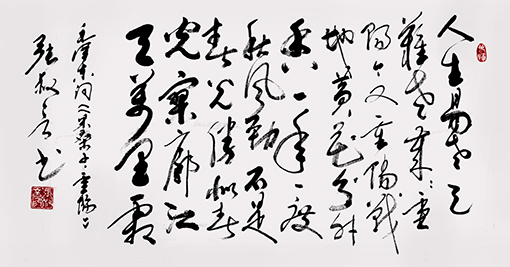 人生易老天
难老岁々重
陽今又重陽战
地黄花分外
香一年一度
秋风劲不是
春光勝似春
光寥廓江
天万里霜
毛泽东词《采桑子·重陽》
书